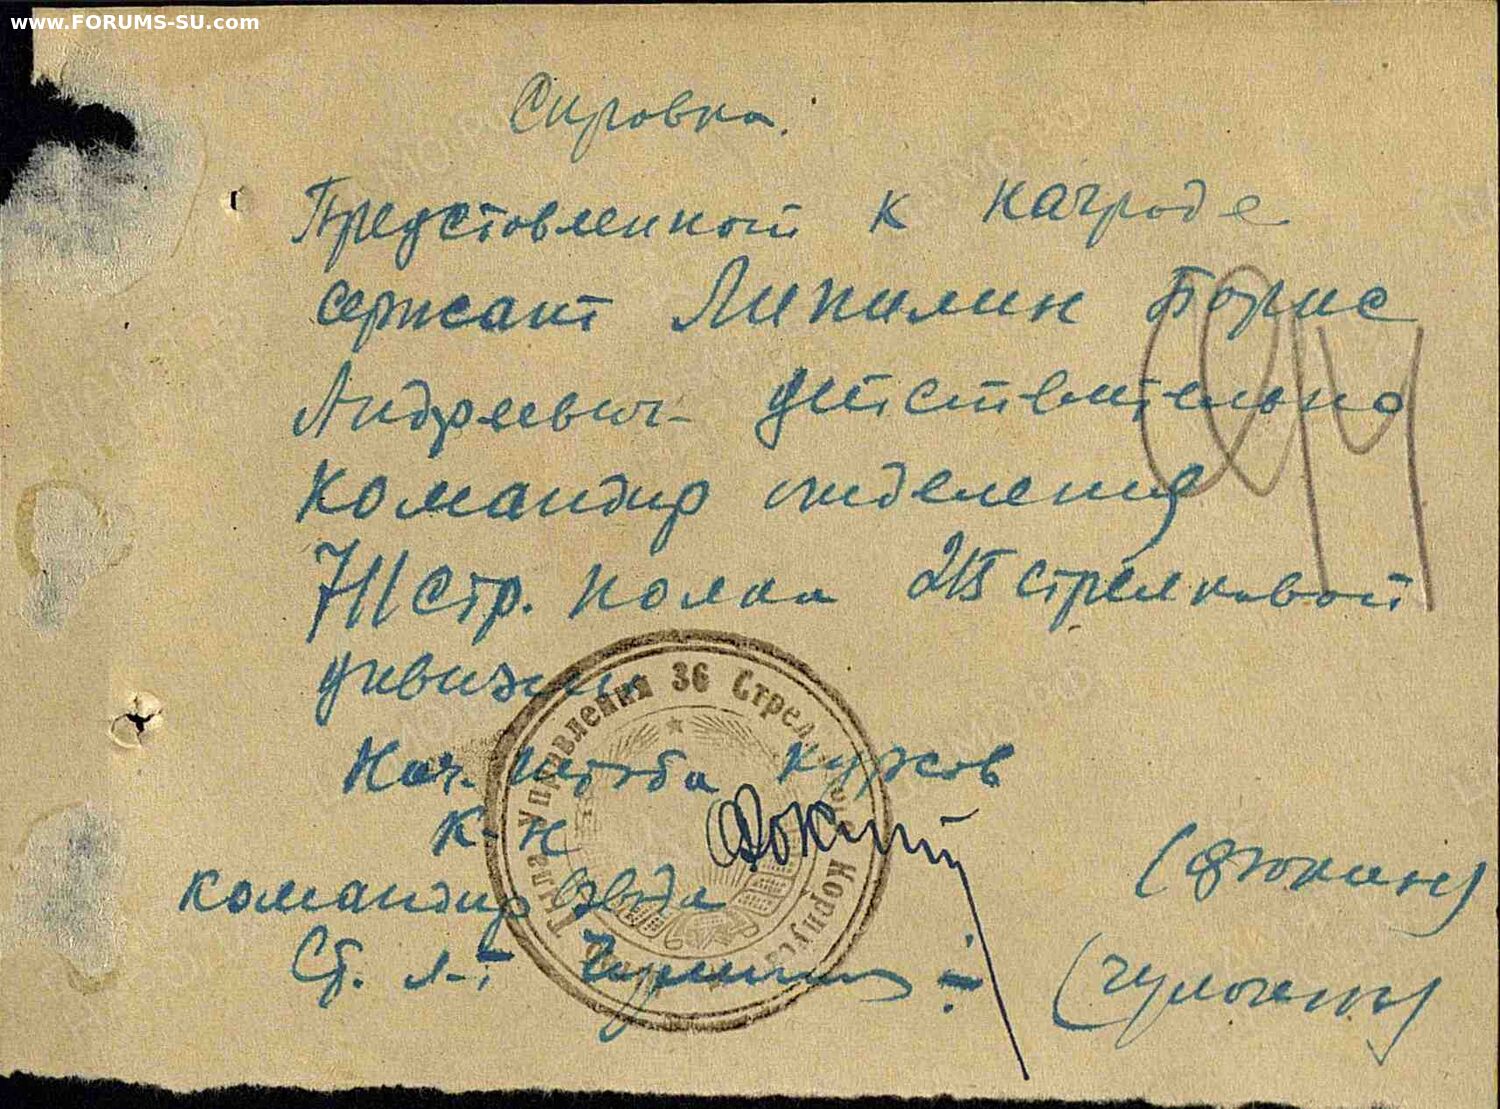 www.FORUMS-SU.com
Справка.
Представленной к награде
сержант Липилин Борис
Андреевич - действительно
командир отделения
711 стр. полка 215 стрелковой
дивизии
Нач. штаба курсов
к-н (Фокин)
командир взвода
Ст. л-т
Тыла Управления 36 Стрелкового Корпуса